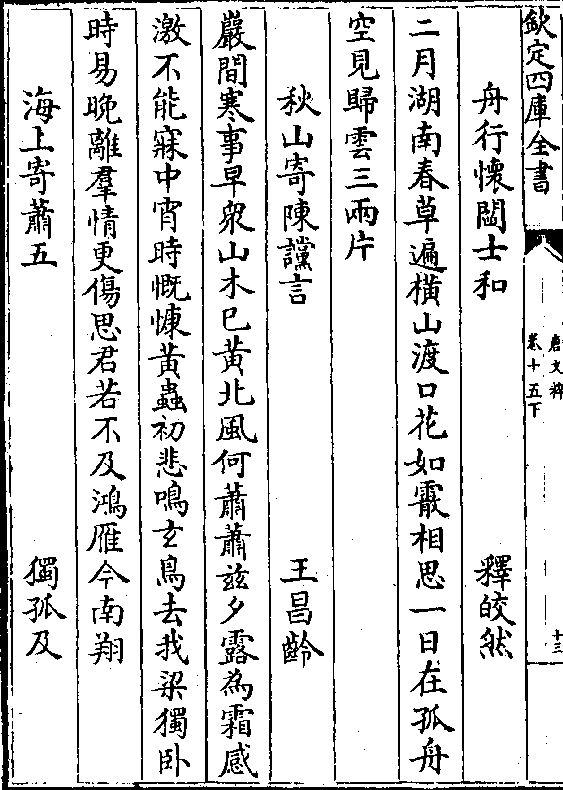 欽定四庫全書
唐文粹
卷十五下
十三
舟行懷閻士和 釋皎然
二月湖南春草遍橫山渡口花如霰相思一日在孤舟
空見歸雲三兩片
秋山寄陳讜言 王昌齡
巖間寒事早衆山木已黃北風何蕭蕭兹夕露為霜感
激不能寐中宵時慨慷黃蟲初悲鳴玄鳥去我梁獨卧
時易晚離羣情更傷思君若不及鴻雁今南翔
海上寄蕭五 獨孤及